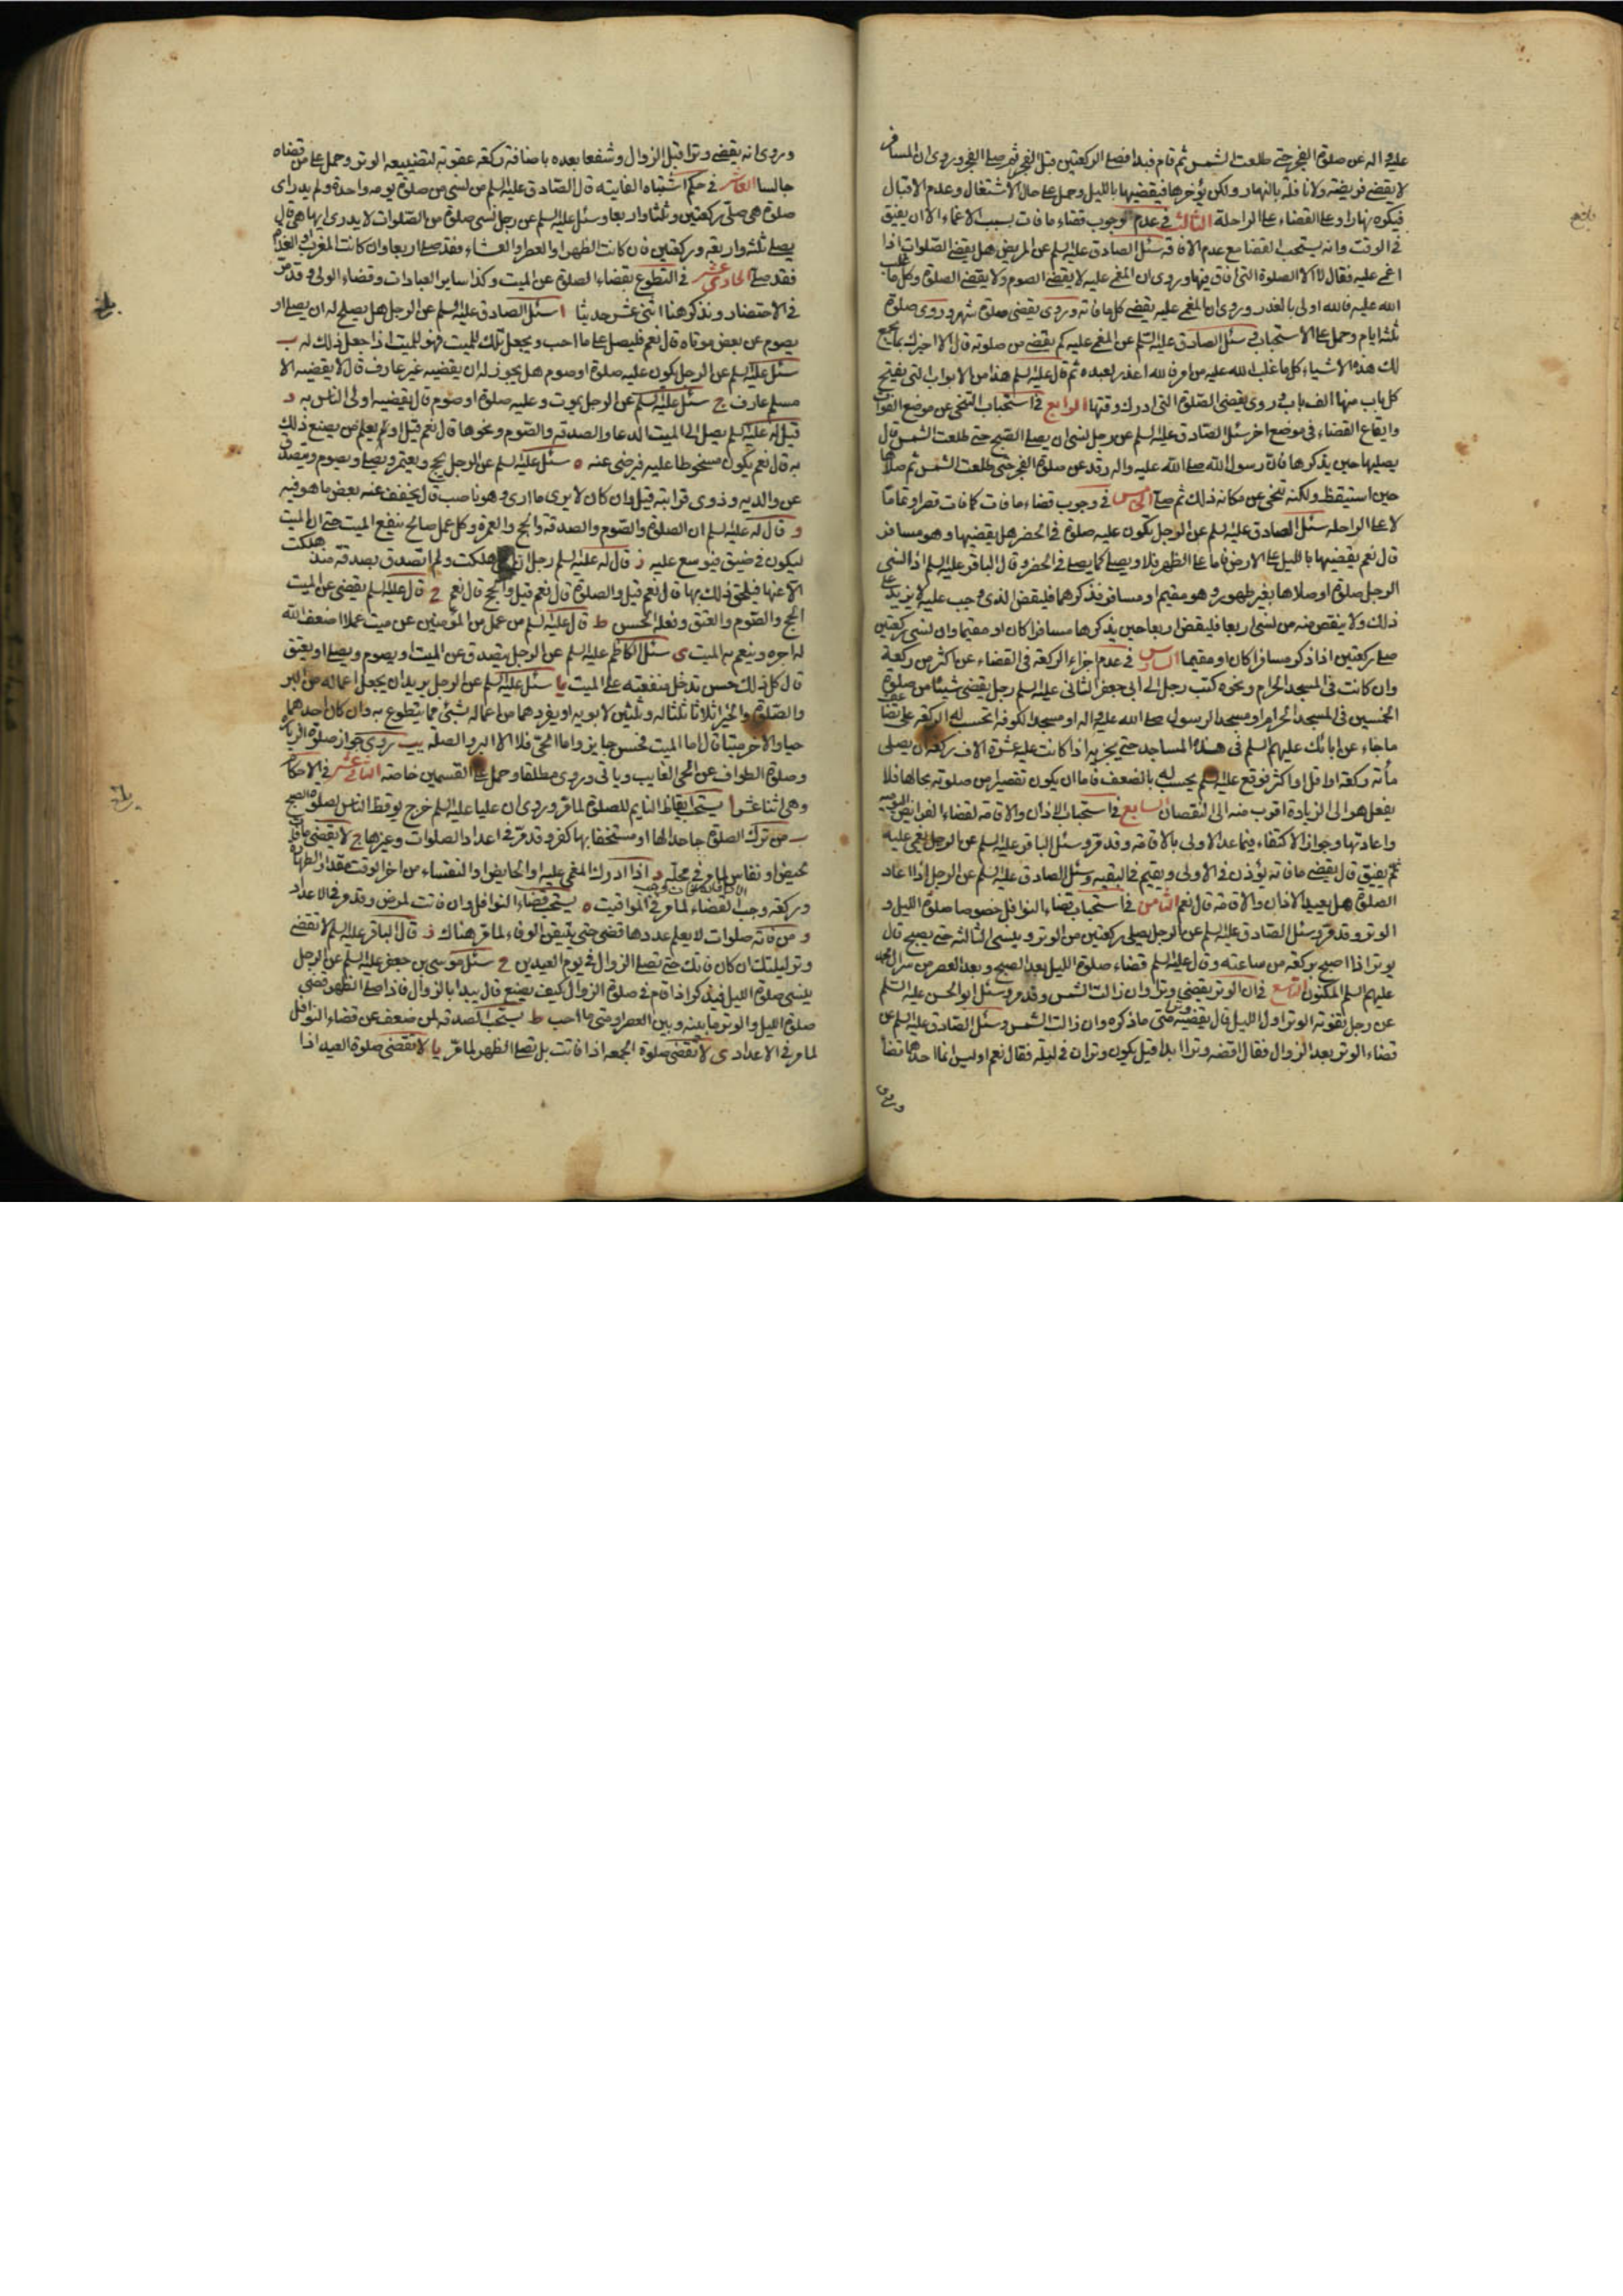 عليه واله عن صلوة الفجر حتى طلعت الشمس ثم قام فبدا فصلى الركعتين قبل الفجر ثم صلى الفجر وروى ان المسافر
لا يقضى فريضة ولا نافلة بالنهار ولكن يؤخرها فيقضيها بالليل وحمل على حال الاشتغال وعدم الاقبال
فيكره نهارا وعلى القضاء على الراحلة الثالث في عدم وجوب قضاء ما فات بسبب الاغماء الا ان يفيق
في الوقت وانه يستحب القضا مع عدم الافاقة سئل الصادق عليه السلم عن المريض هل يقضى الصلوات اذا
اغمى عليه فقال لا الا الصلوة التى افاق فيها وروى ان المغمى عليه لا يقضى الصوم ولا يقضى الصلوة وكل ما غلب
الله عليه فالله اولى بالعذر وروى ان المغمى عليه يقضى كل ما فاته وروى يقضى صلوة شهر وروى صلوة
ثلثة ايام وحمل على الاستحباب سئل الصادق عليه السلم عن المغمى عليه كم يقضى من صلوته قال الا اخبرك بما يجمع
لك هذه الاشياء كل ما غلب الله عليه من امر فالله اعذر لعبده ثم قال عليه السلم هذا من الابواب التى يفتح
كل باب منها الف باب وروى يقضى الصلوة التى ادرك وقتها الرابع في استحباب التنحى عن موضع الفوات
وايقاع القضاء فى موضع اخر سئل الصادق عليه السلم عن رجل نسى ان يصلى الصبح حتى طلعت الشمس قال
يصليها حين يذكرها فان رسول الله صلى الله عليه واله رقد عن صلوة الفجر حتى طلعت الشمس ثم صلاها
حين استيقظ ولكنه تنحى عن مكانه ذلك ثم صلى الخامس في وجوب قضاء ما فات كما فات قصرا وتماما
لا على الراحلة سئل الصادق عليه السلم عن الرجل يكون عليه صلوة في الحضر هل يقضيها وهو مسافر
قال نعم يقضيها بالليل على الارض فاما على الظهر فلا ويصلى كما يصلى في الحضر وقال الباقر عليه السلم اذا نسى
الرجل صلوة او صلاها بغير طهور وهو مقيم او مسافر فذكرها فليقض الذى وجب عليه لا يزيد على
ذلك ولا ينقص منه من نسى اربعا فليقض اربعا حين يذكرها مسافرا كان او مقيما وان نسى ركعتين
صلى ركعتين اذا ذكر مسافرا كان او مقيما السادس في عدم اجزاء الركعة في القضاء عن اكثر من ركعة
وان كانت في المسجد الحرام ونحوه كتب رجل الى ابى جعفر الثانى عليه السلم رجل يقضى شيئا من صلوة
الخمسين في المسجد الحرام او مسجد الرسول صلى الله عليه واله او مسجد الكوفة اتحسب له الركعة على تضاعف
ما جاء عن ابائك عليهم السلم في هذه المساجد حتى يجزيه اذا كانت عليه عشرة الاف ركعة ان يصلى
مأته ركعة او اقل او اكثر فوقع عليه السلم يحسب له بالضعف فاما ان يكون تقصيرا من صلوته بحالها فلا
يفعل هو الى الزيادة اقرب منه الى النقصان السابع في استحباب الاذان والاقامة لقضاء الفرائض اليومية
واعادتها وجواز الاكتفاء فيما عدا الاولى بالاقامة وقد مر وسئل الباقر عليه السلم عن الرجل يغمى عليه
ثم يفيق قال يقضى ما فاته يؤذن في الاولى ويقيم في البقيه وسئل الصادق عليه السلم عن الرجل اذا اعاد
الصلوة هل يعيد الاذان والاقامة قال نعم الثامن في استحباب قضاء النوافل خصوصا صلوة الليل و
الوتر وقد مر وسئل الصادق عليه السلم عن الرجل يصلى ركعتين من الوتر وينسى الثالثة حتى يصبح قال
يوتر اذا اصبح بركعة من ساعته وقال عليه السلم قضاء صلوة الليل بعد الصبح وبعد العصر من سر ال محمد
عليهم السلم المكنون التاسع في ان الوتر يقضى وترا وان زالت الشمس وقد مر وسئل ابو الحسن عليه السلم
عن رجل تفوته الوتر اول الليل قال يقضيه وترا متى ما ذكره وان زالت الشمس وسئل الصادق عليه السلم عن
قضاء الوتر بعد الزوال فقال اقضه وترا ابدا قيل يكون وتران في ليلة فقال نعم اوليس انما احدهما قضا
وروى
وروى انه يقضى وترا قبل الزوال وشفعا بعده باضافة ركعة عقوبة لتضييعه الوتر وحمل على من قضاه
جالسا العاشر في حكم اشتباه الفايته قال الصادق عليه السلم من نسى من صلوة يومه واحدة ولم يدر اى
صلوة هى صلى ركعتين وثلثا واربعا وسئل عليه السلم عن رجل نسى صلوة من الصلوات لا يدرى ايها هى قال
يصلى ثلثة واربعة وركعتين فان كانت الظهر او العصر او العشاء فقد صلى اربعا وان كانت المغرب او الغداة
فقد صلى الحادى عشر في التطوع بقضاء الصلوة عن الميت وكذا ساير العبادات وقضاء الولى وقد مر
في الاحتضار ونذكر هنا اثنى عشر حديثا ا سئل الصادق عليه السلم عن الرجل هل يصلح له ان يصلى او
يصوم عن بعض موتاه قال نعم فليصل على ما احب ويجعل تلك للميت فهو للميت اذا جعل ذلك له ب
سئل عليه السلم عن الرجل يكون عليه صلوة او صوم هل يجوز له ان يقضيه غير عارف قال لا يقضيه الا
مسلم عارف ج سئل عليه السلم عن الرجل يموت وعليه صلوة او صوم قال يقضيه اولى الناس به د
قيل له عليه السلم يصل الى الميت الدعا والصدقة والصوم ونحوها قال نعم قيل او يعلم من يصنع ذلك
به قال نعم يكون مسخوطا عليه فيرضى عنه ه سئل عليه السلم عن الرجل يحج ويعتمر ويصلى ويصوم ويتصدق
عن والديه وذوى قرابته قيل وان كان لا يرى ما ارى وهو ناصب قال يخفف عنه بعض ما هو فيه
و قال عليه السلم ان الصلوة والصوم والصدقة والحج والعمرة وكل عمل صالح ينفع الميت حتى ان الميت
ليكون في ضيق فيوسع عليه ز قال له عليه السلم رجل ان امى هلكت ولم اتصدق بصدقة منذ هلكت
الا عنها فيلحق ذلك بها قال نعم قيل والصلوة قال نعم قيل والحج قال نعم ح قال عليه السلم يقضى عن الميت
الحج والصوم والعتق وفعله الحسن ط قال عليه السلم من عمل من المؤمنين عن ميت عملا اضعف الله
له اجره وينعم به الميت ى سئل الكاظم عليه السلم عن الرجل يتصدق عن الميت او يصوم ويصلى او يعتق
قال كل ذلك حسن تدخل منفعته على الميت يا سئل عليه السلم عن الرجل يريد ان يجعل اعماله من البر
والصلوة والخير اثلاثا ثلثا له وثلثين لابويه او يفردهما من اعماله بشئ مما يتطوع به وان كان احدهما
حيا والاخر ميتا قال اما الميت فحسن جايز واما الحى فلا الا البر والصلة يب روى جواز صلوة الزيارة
وصلوة الطواف عن الحى الغايب وياتى وروى مطلقا وحمل على القسمين خاصة الثانى عشر في الاحكام
وهى اثنا عشر ا يستحب ايقاظ النايم للصلوة لما مر وروى ان عليا عليه السلم خرج يوقظ الناس لصلوة الصبح
ب من ترك الصلوة جاحدا لها او مستخفا بها كفر وقد مر في اعداد الصلوات وغيرها ج لا يقضى ما فات
بحيض او نفاس لما مر في محله د اذا ادرك المغمى عليه او الحايض او النفساء من اخر الوقت مقدار الطهارة
وركعة وجب القضاء لما مر في المواقيت ه يستحب قضاء النوافل وان فاتت لمرض وقد مر في الاعداد
و من فاته صلوات لا يعلم عددها قضى حتى يتيقن الوفاء لما مر هناك ز قال الباقر عليه السلم لا تقضى
وتر ليلتك ان كان فاتك حتى تصلى الزوال في يوم العيدين ح سئل موسى بن جعفر عليه السلم عن الرجل
ينسى صلوة الليل فيذكر اذا قام في صلوة الزوال كيف يصنع قال يبدا بالزوال فاذا صلى الظهر قضى
صلوة الليل والوتر ما بينه وبين العصر او متى ما احب ط يستحب الصدقة لمن ضعف عن قضاء النوافل
لما مر في الاعداد ى لا تقضى صلوة الجمعة اذا فاتت بل تصلى الظهر لما مر يا لا تقضى صلوة العيد اذا